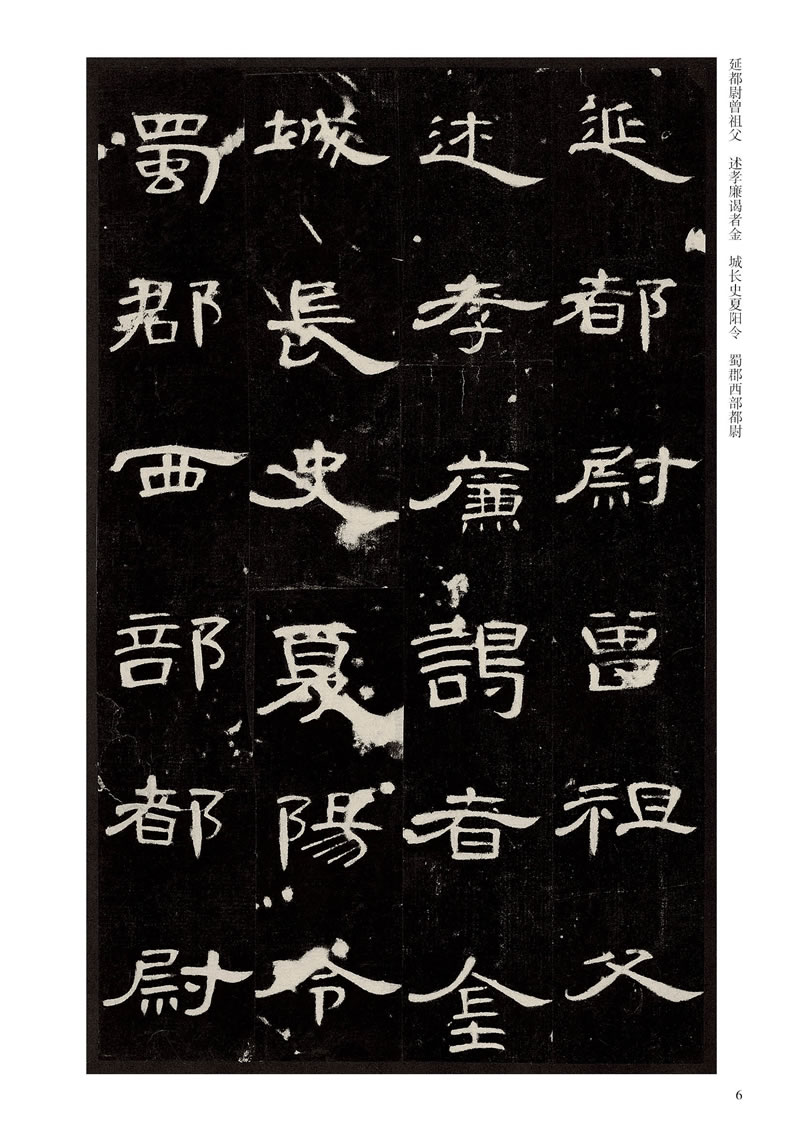 延都尉曾祖父　述孝廉谒者金　城长史夏阳令　蜀郡西部都尉
延都尉曾祖父
述孝廉謁者金
城長史夏陽令
蜀郡西部都尉
6